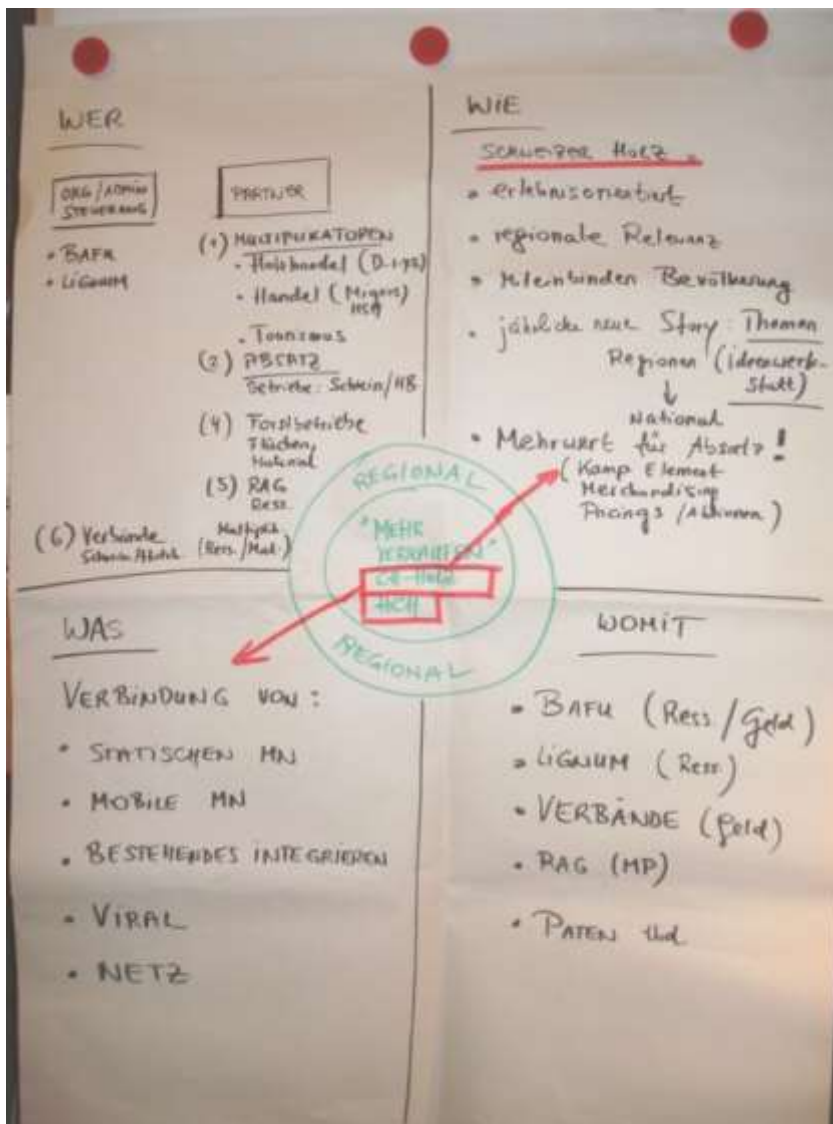 WER
ORG/ADMIN
STEUERUNG
• BAFU
• LIGNUM
PARTNER
(1) MULTIPLIKATOREN
• Holzhandel
• Handel (Migros)
• Tourismus
(2) ABSATZ
Betriebe: Schrein/HB
(4) Forstbetriebe
Flächen,
Material
(5) RAG
Ress.
(6) Verbände
(Ress./Mat.)
WIE
SCHWEIZER HOLZ
• erlebnisorientiert
• regionale Relevanz
• Miteinbinden Bevölkerung
• jährliche neue Story: Themen
Regionen (Ideenwerk-
statt)
↓
National
• Mehrwert für Absatz!
(Komp Element
Merchandising
/Aktionen)
REGIONAL
"MEHR
VERKAUFEN"
CH-Holz
HCH
REGIONAL
WAS
VERBINDUNG VON:
• STATISCHEN MN
• MOBILE MN
• BESTEHENDES INTEGRIEREN
• VIRAL
• NETZ
WOMIT
• BAFU (Ress/Geld)
• LIGNUM (Ress.)
• VERBÄNDE (Geld)
• RAG (MP)
• PATEN tbd